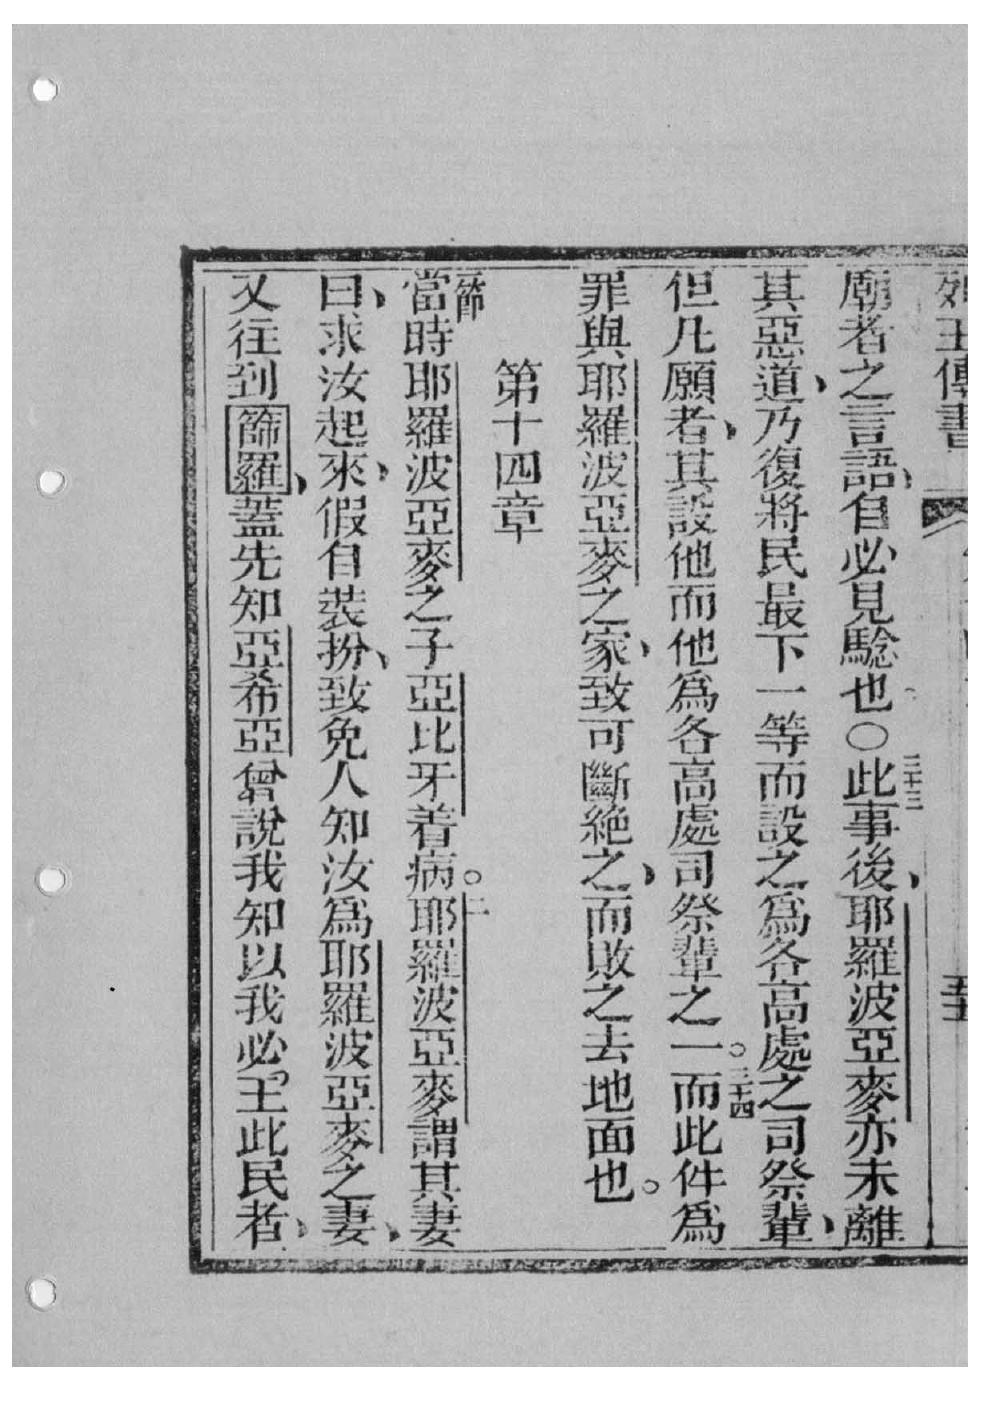 列王傳書
廟者之言語、自必見騐也〇三十三此事後、耶羅波亞麥亦未離
其惡道、乃復將民最下一等而設之爲各高處之司祭輩、
但凡願者、其設他而他爲各高處司祭輩之一。三十四而此件爲
罪與耶羅波亞麥之家、致可斷絶之、而敗之去地面也。
第十四章
一節當時耶羅波亞麥之子亞比牙着病。二耶羅波亞麥謂其妻
曰、求汝起來、假自裝扮、致免人知汝爲耶羅波亞麥之妻、
又往到篩羅、蓋先知亞希亞曾說我知以我必王此民者、